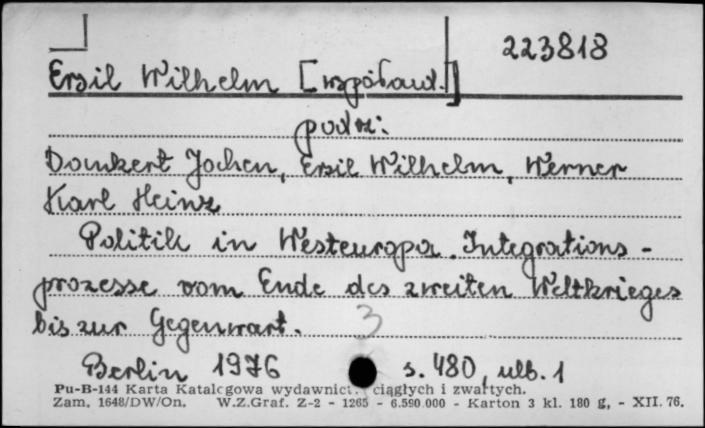 223818
Ersil Wilhelm [współaut.]
podz:
Dankert Jochen, Ersil Wilhelm, Werner
Karl Heinz
Politik in Westeuropa. Integrations-
prozesse vom Ende des zweiten Weltkrieges
bis zur Gegenwart. 3
Berlin 1976 s. 480, ulb. 1
Pu-B-144 Karta Katalogowa wydawnict. ciągłych i zwartych.
Zam. 1648/DW/On. W.Z.Graf. Z-2 - 1265 - 6.590.000 - Karton 3 kl. 180 g, - XII. 76.